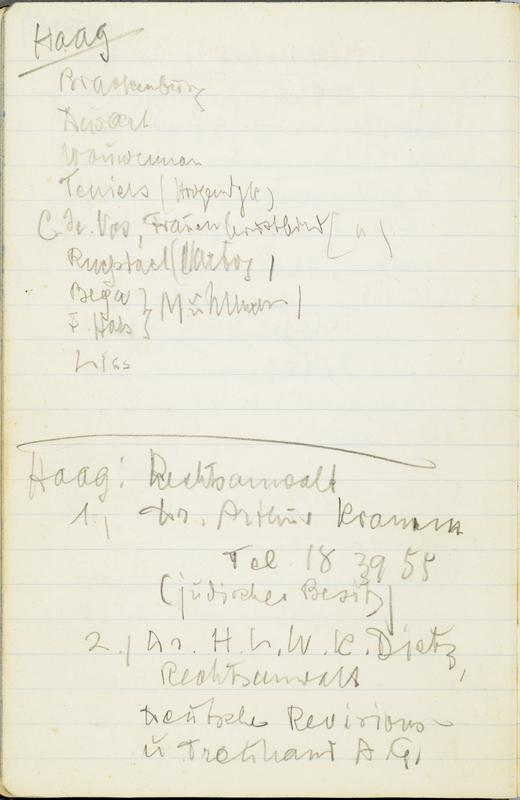 Haag
Brackenburg
Dusart
Wouwerman
Teniers (Hogendyk)
C. de Vos, Frauenbrustbild (
Ruysdael (Hartog)
Bega } Mühlmann
F. Hals }
Liss
Haag: Rechtsanwalt
1., Dr. Arthur Kramm
Tel. 18 39 55
(jüdischer Besitz)
2., Dr. H. L. W. K. Dietz,
Rechtsanwalt
Deutsche Revisions-
u Treuhand A.G.